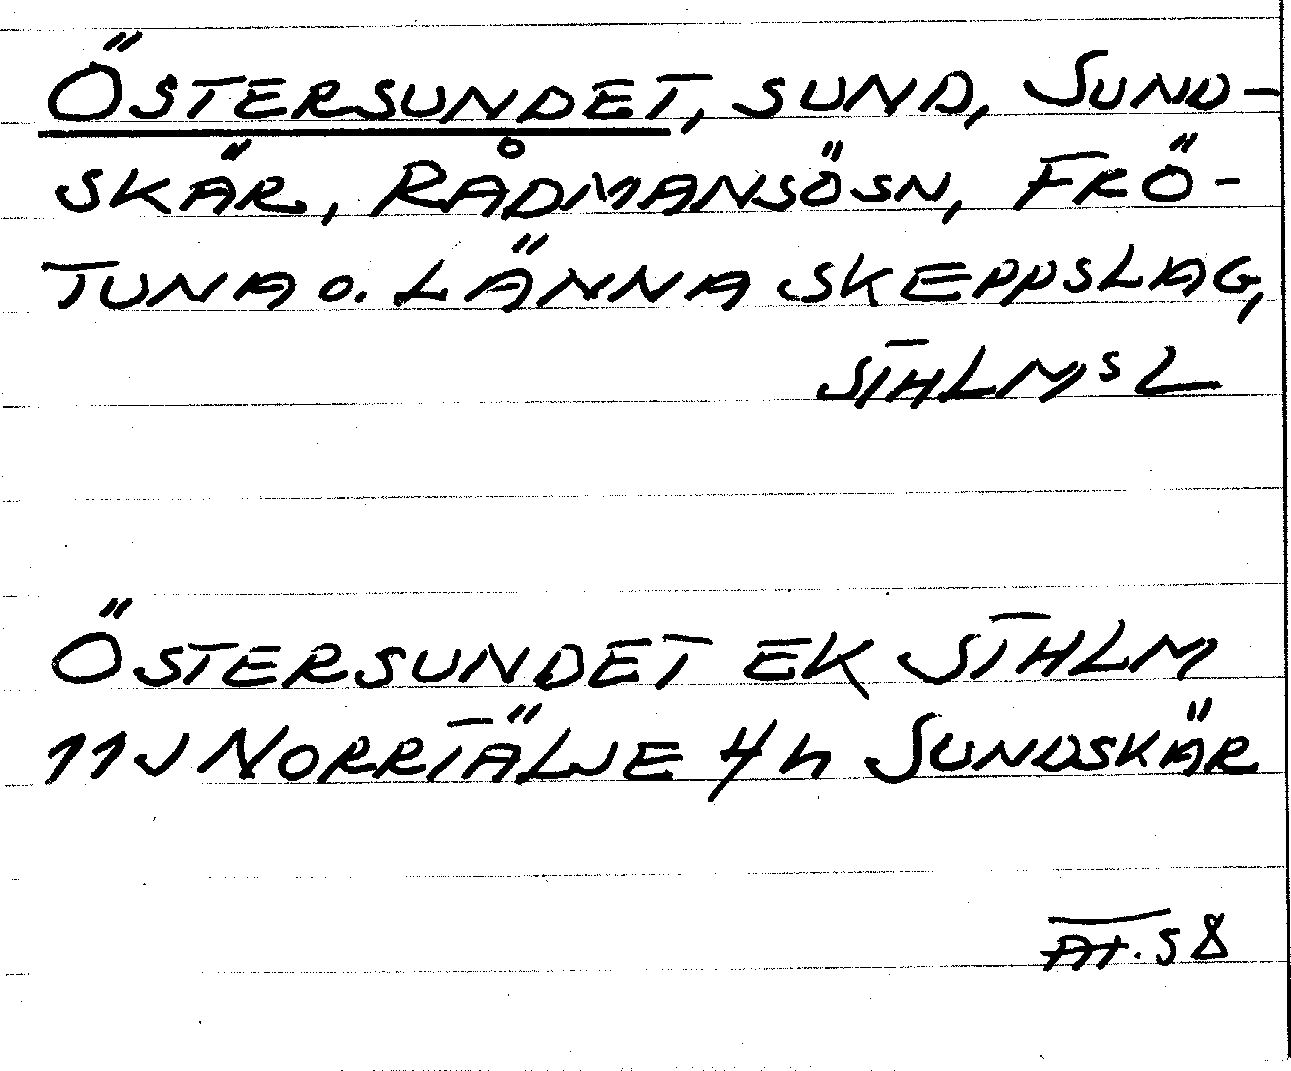 ÖSTERSUNDET, SUND, SUND-
SKÄR, RÅDMANSÖ SN, FRÖ-
TUNA o. LÄNNA SKEPPSLAG,
STHLMS L
ÖSTERSUNDET EK STHLM
11J NORRTÄLJE 4h SUNDSKÄR
58